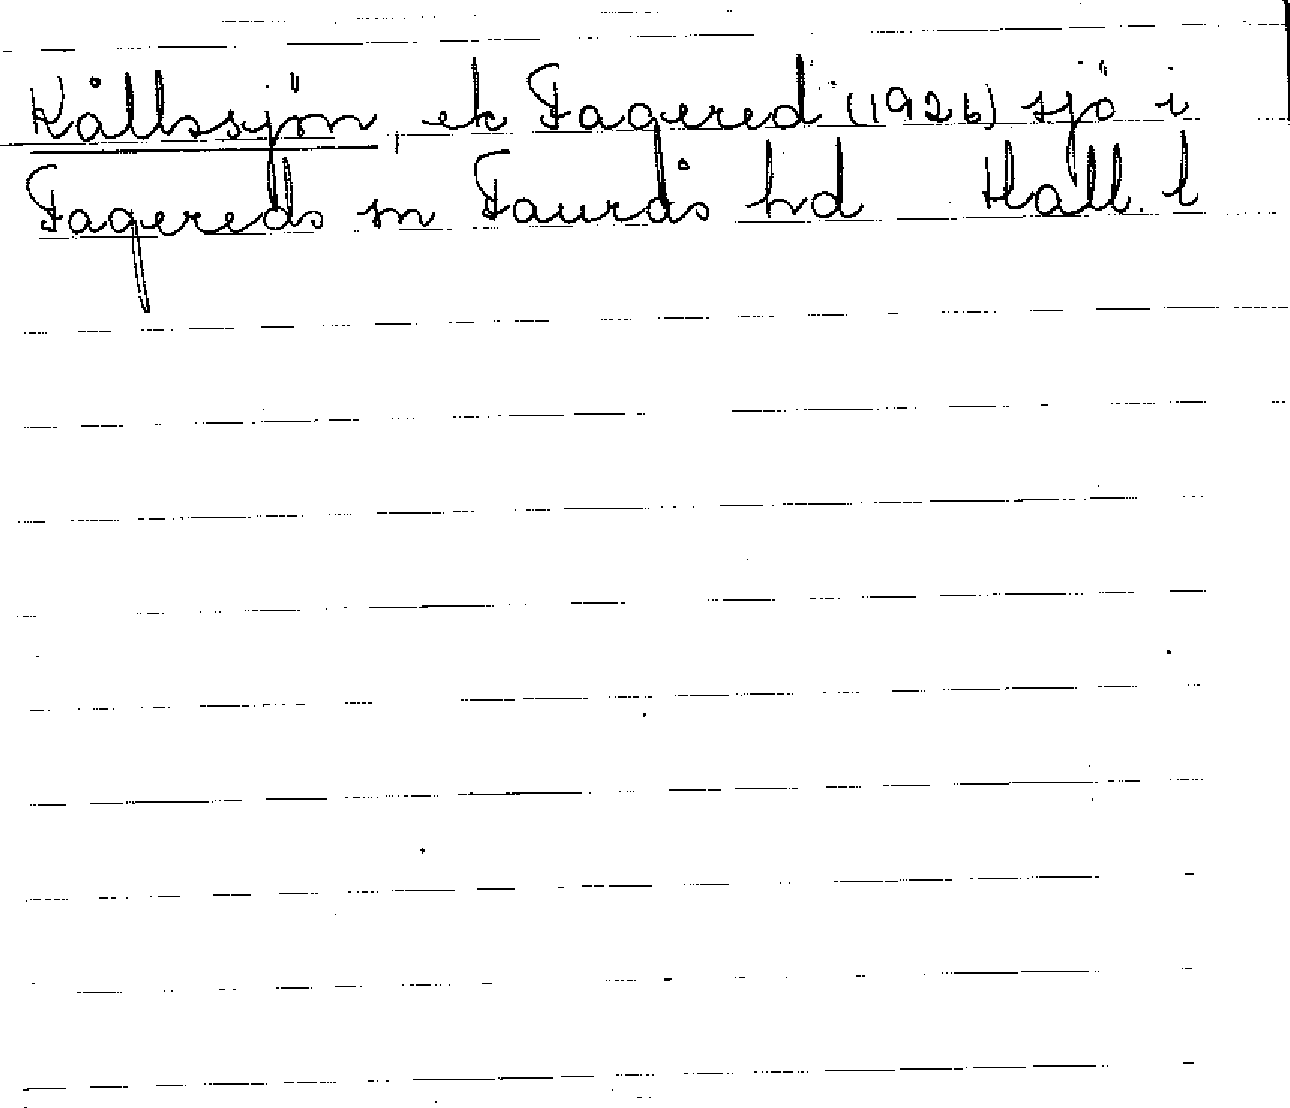 Kållssjön, ek Fagered (1926) sjö i
Fagereds sn Faurås hd Hall. l